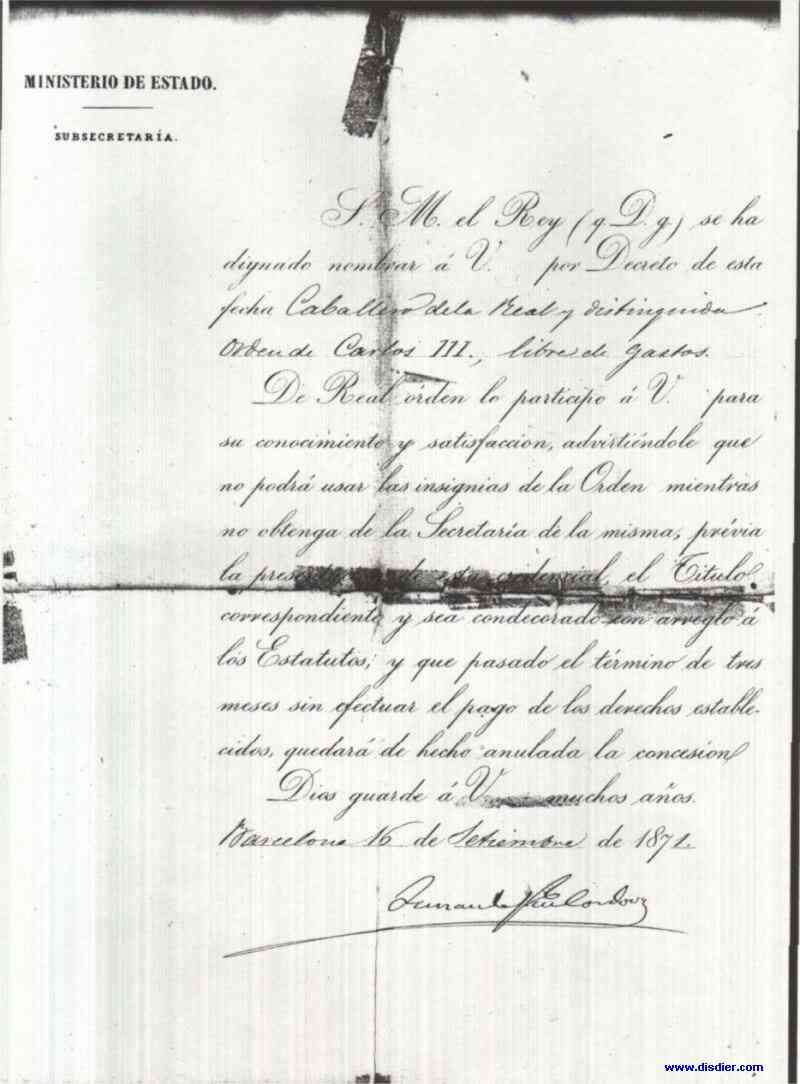 MINISTERIO DE ESTADO.
SUBSECRETARÍA.
S. M. el Rey (q. D. g.) se ha
dignado nombrar á V. por Decreto de esta
fecha Caballero de la Real y distinguida
Orden de Carlos III., libre de gastos.
De Real órden lo participo á V. para
su conocimiento y satisfaccion, advirtiéndole que
no podrá usar las insignias de la Orden mientras
no obtenga de la Secretaría de la misma, prévia
la de esta credencial, el Título
correspondiente y sea condecorado con arreglo á
los Estatutos; y que pasado el término de tres
meses sin efectuar el pago de los derechos estable-
cidos, quedará de hecho anulada la concesion
Dios guarde á V. muchos años.
Barcelona 16 de Setiembre de 1871.
www.disdier.com